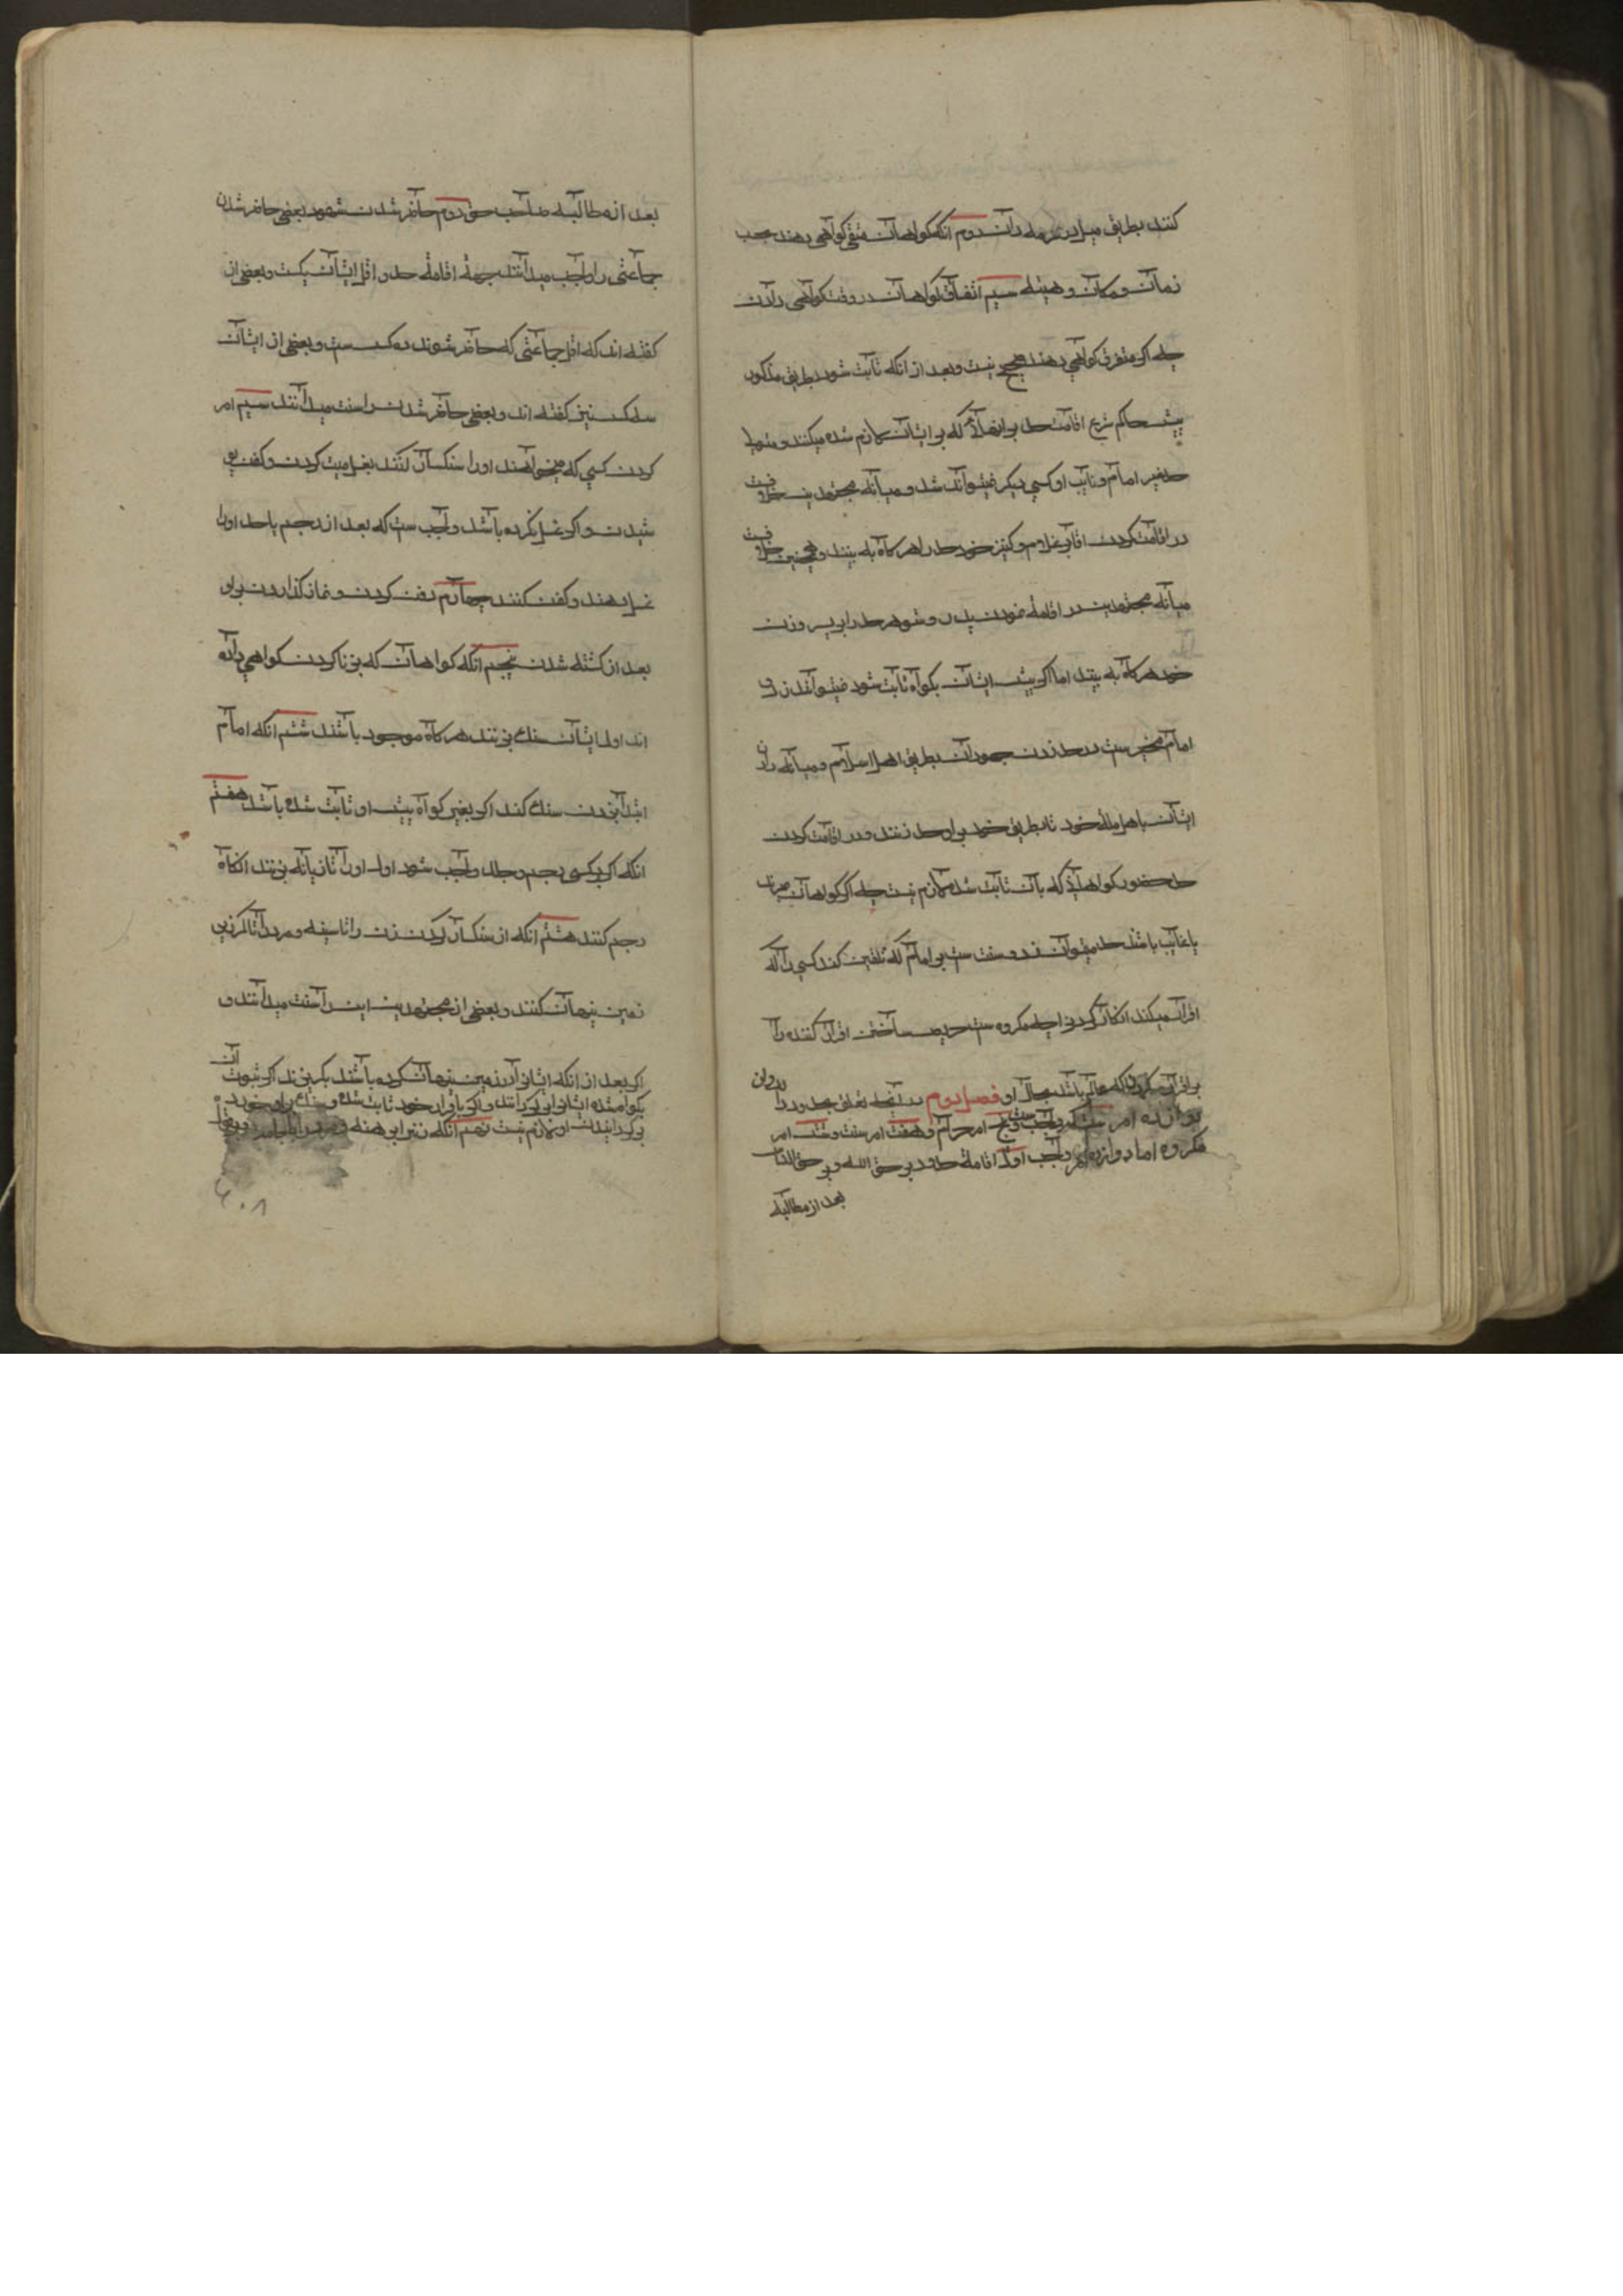 کنند بطریق میل در سرمه دان دوم انکه کواهان متفق کواهی دهند بحسب
زمان و مکان و هیئه سیم اتفاق کواهان در وقت کواهی دادن
چه اکر متفرق کواهی دهند صحیح نیست و بعد از انکه ثابت شود بطریق مذکور
پیش حاکم شرع اقامت حد بر انها که بر ایشان لازم شده میکنند و متولی
حد غیر امام و نایب او کسی دیکر نمیتواند شد و میانه مجتهدین خلافست
در اقامت کردن اقا بر غلام و کنیز خود حد را هر کاه به بینند و همچنین خلافست
میانه مجتهدین در اقامهٔ نمودن پدر و شوهر حد را بر پسر و زن
خود هر کاه به بیند اما اکر پیش ایشان بکواه ثابت شود نمیتوانند زد و
امام مخیر ست در حد زدن جهودان بطریق اهل اسلام و میانه دادن
ایشان باهل ملة خود تا بطریق خود بر او حد زنند و در اقامت کردن
حد حضور کواهان که بآن ثابت شده لازم نیست چه اکر کواهان بمیرند
یا غایب باشند حد میتوان زد و سنت ست بر امام که تلقین کند کسی را که
اقرار میکند انکار کردن را چه مکروه ست حریص ساختن اقرار کننده را
بر اقرار کردن که عالم باشد بحال او فصل دوم در آنچه تعلق بحدود دارد و ان
دوازده امر واجب و پنج امر حرام و هفت امر سنت و شش امر
مکروه اما دوازده امر واجب اول اقامهٔ حدود بر حق الله و بر حق الناس
بعد از مطالبه
بعد از مطالبه صاحب حق دوم حاضر شدن شهود بعضی حاضر شدن
جماعتی را واجب میدانند بجهة اقامهٔ حد و اقل ایشان یکست و بعضی از
کفته اند که اقل جماعتی که حاضر شوند ده کس ست و بعضی از ایشان
سه کس نیز کفته اند و بعضی حاضر شدن را سنت میدانند سیم امر
کردن کسی که میخواهند او را سنکسار کنند بغسل میت کردن و کفن پو
شیدن و اکر غسل نکرده باشد واجب ست که بعد از رجم یا حد او را
غسل دهند و کفن کنند چهارم دفن کردن و نماز کذاردن بر او
بعد از کشته شدن پنجم انکه کواهان که بزنا کردن کواهی داده
اند اول ایشان سنک بزنند هر کاه موجود باشند ششم انکه امام
ابتدا بزدن سنک کند اکر بغیر کواه پیش او ثابت شده باشد هفتم
انکه اکر بر کسی رجم و جلد واجب شود اول او را تازیانه بزنند انکاه
رجم کنند هشتم انکه از سنکسار کردن زن را تا سینه و مرد را تا کمر در
زمین پنهان کنند و بعضی از مجتهدین این را سنت میدانند و
اکر بعد از انکه ایشان را در زمین پنهان کرده باشند بکریزند اکر ثبوت آن
بکواه شده ایشان را بر کردانند و اکر باقرار خود ثابت شده و سنک بر او خورده
بر کردانیدن او لازم نیست نهم انکه زن را برهنه
۴۰۸